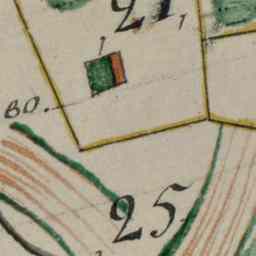 21,
1
80.
25.